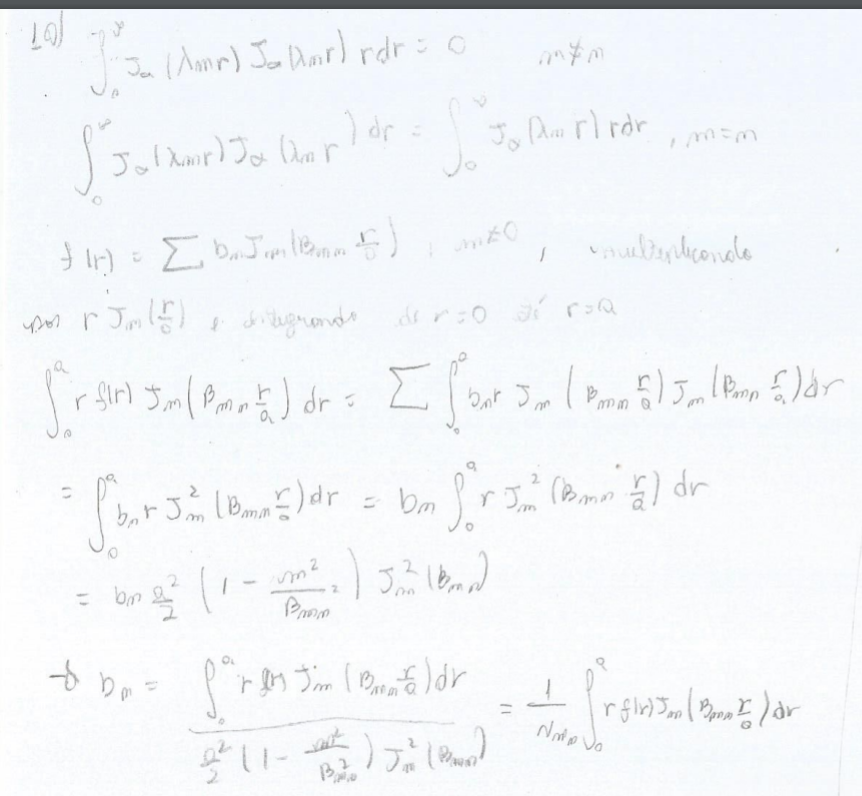 10)
∫₀^∞ Jα(λm r) Jα(λn r) r dr = 0    m≠n
∫₀^∞ Jα(λm r) Jα(λn r) dr = ∫₀^∞ Jα(λm r) r dr , m=n
f(r) = Σ bn Jm(βmn r/a) , m≠0 , multiplicando
por r Jm(r/a) e integrando de r=0 até r=a
∫₀^a r f(r) Jm(βmn r/a) dr = Σ ∫₀^a bn r Jm(βmn r/a) Jm(βmn r/a) dr
= ∫₀^a bn r Jm²(βmn r/a) dr = bn ∫₀^a r Jm²(βmn r/a) dr
= bn a²/2 (1 - m²/βmn²) Jm²(βmn)
→ bn = ∫₀^a r f(r) Jm(βmn r/a) dr / a²/2 (1 - m²/βmn²) Jm²(βmn) = 1/Nmn ∫₀^a r f(r) Jm(βmn r/a) dr